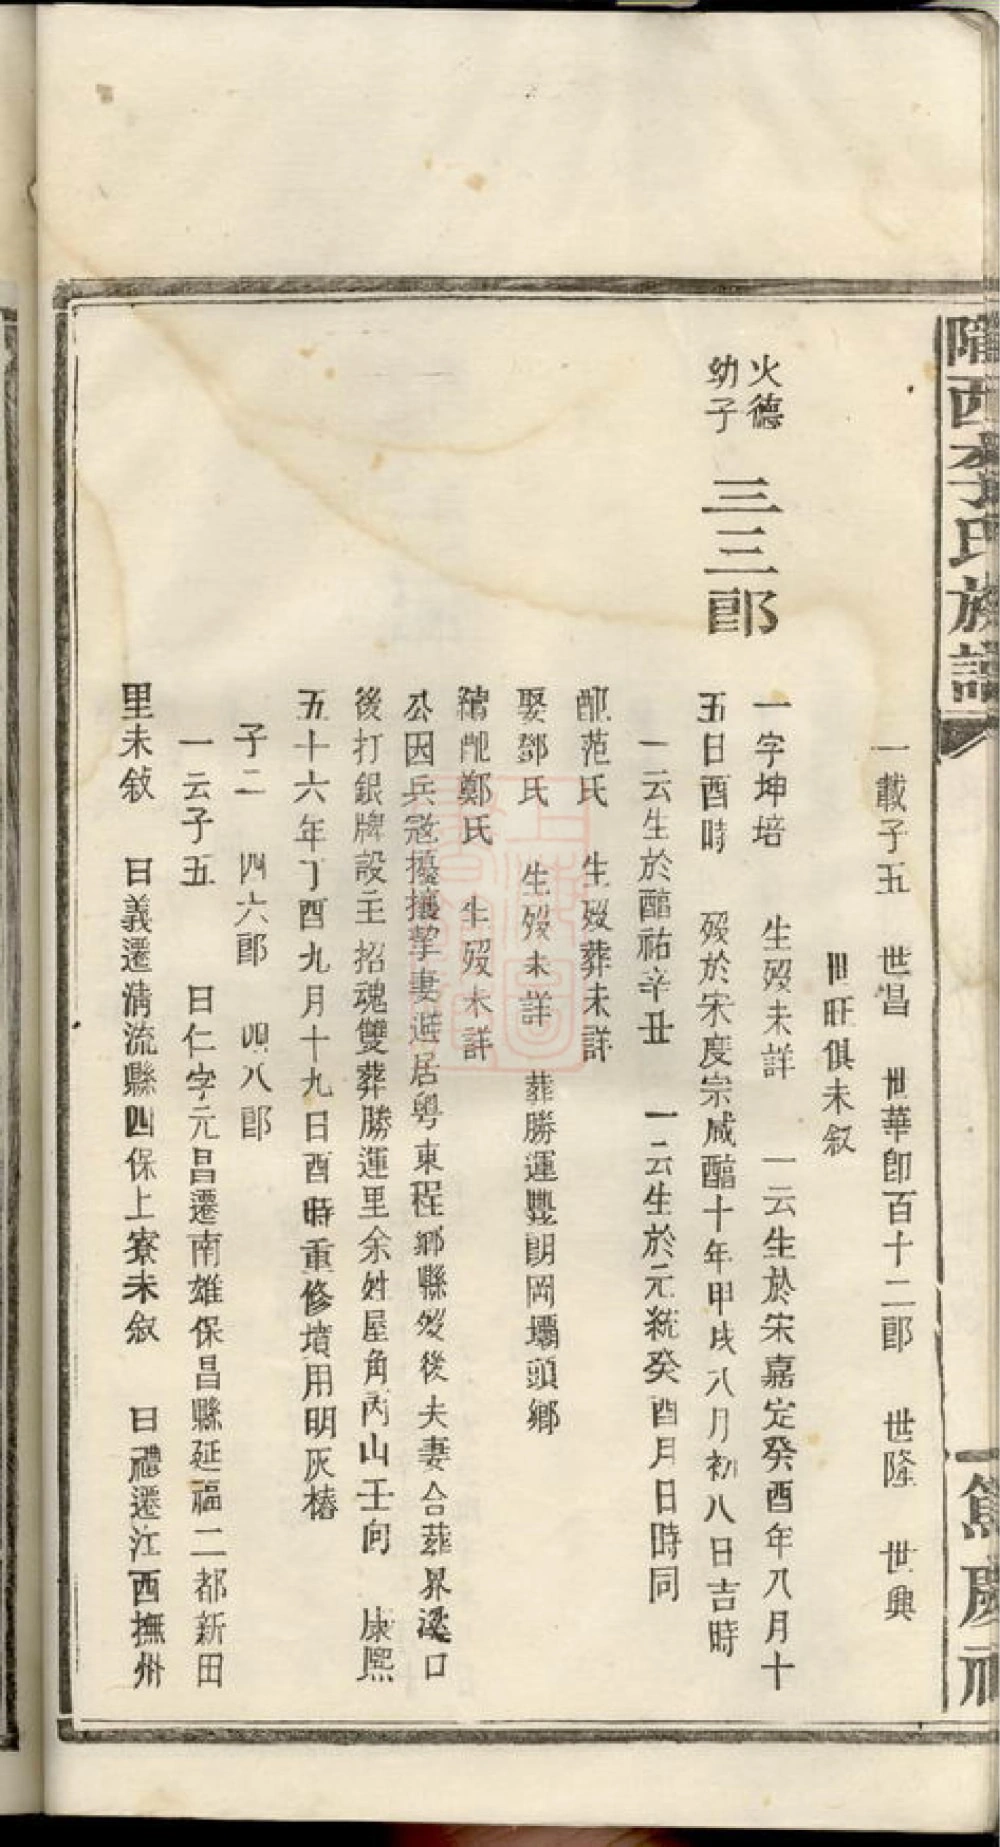 隴西李氏族譜
篤慶祠
一載子五　世昌　世華卽百十二郎　世隆　世興
世旺俱未叙
火德
幼子
三三郎
一字坤培　生歿未詳　一云生於宋嘉定癸酉年八月十
五日酉時　歿於宋度宗咸醕十年甲戌八月初八日吉時
一云生於醕祐辛丑　一云生於元統癸酉月日時同
配范氏　生歿葬未詳
娶鄧氏　生歿未詳　葬勝運豐朗岡壩頭鄉
續配鄭氏　生歿未詳
公因兵寇擾攘挈妻避居粵東程鄉縣歿後夫妻合葬界溪口
後打銀牌設主招魂雙葬勝運里余姓屋角丙山壬向　康熙
五十六年丁酉九月十九日酉時重修墳用明灰樁
子二　四六郎　四八郎
一云子五　曰仁字元昌遷南雄保昌縣延福二都新田
里未敍　曰義遷淸流縣四保上寮未叙　曰禮遷江西撫州